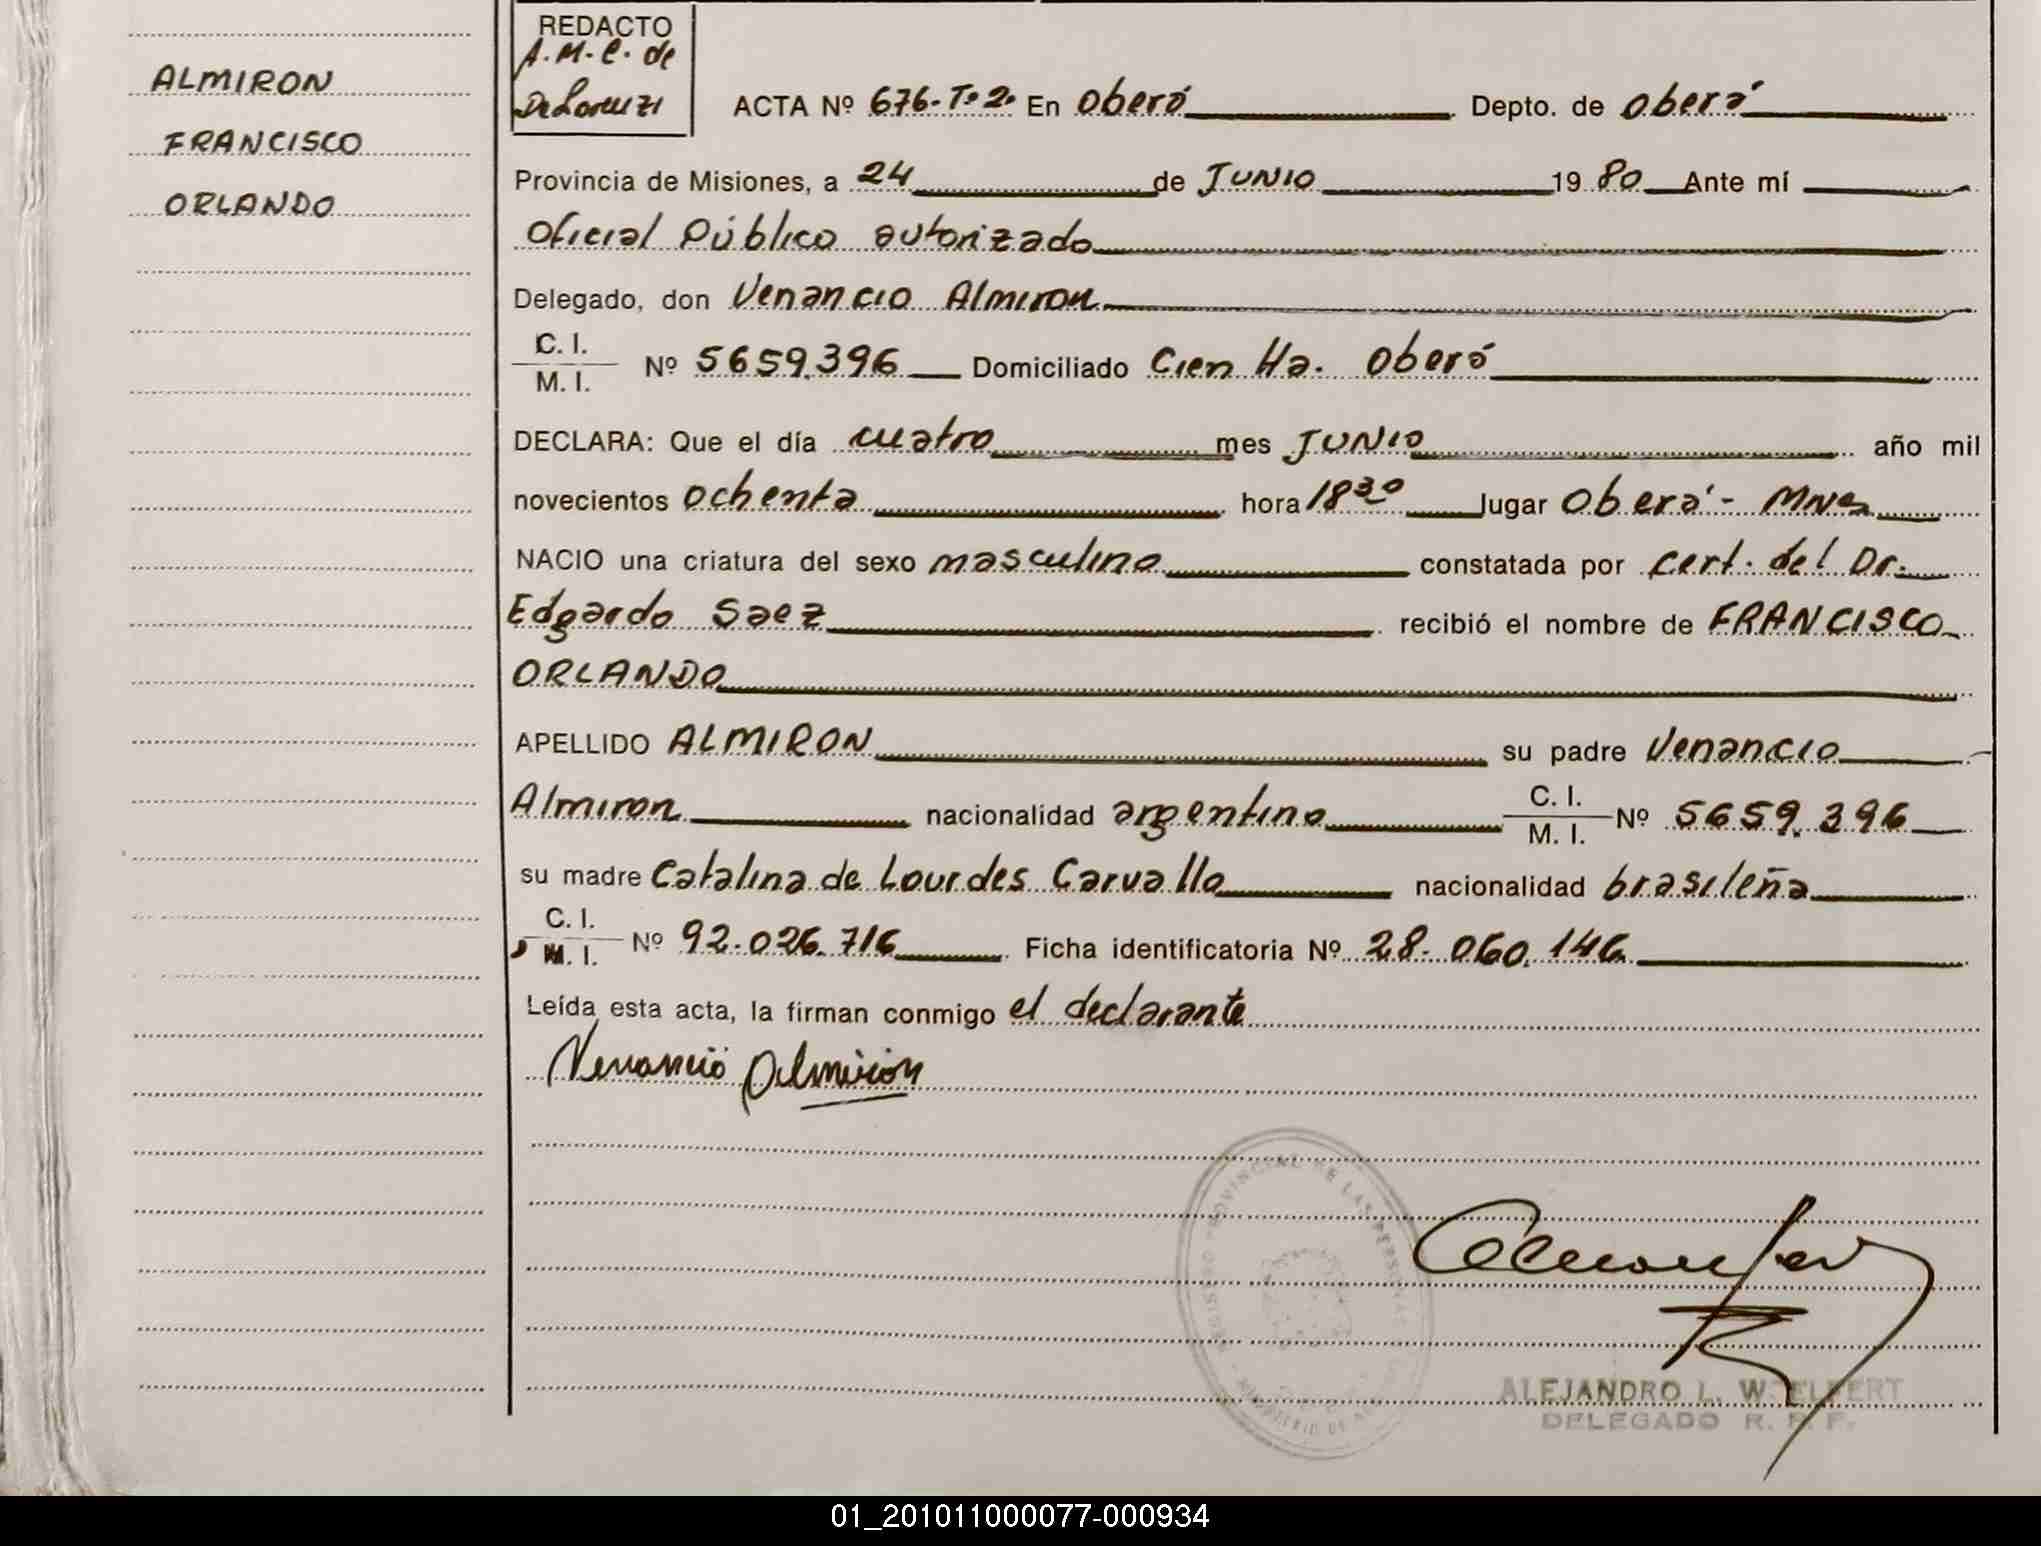 ALMIRON
FRANCISCO
ORLANDO
REDACTO
A.M.C. de
De Lorenzi
ACTA Nº 676-Tº2. En Oberá Depto. de Oberá
Provincia de Misiones, a 24 de JUNIO 1980 Ante mí
Oficial Público autorizado
Delegado, don Venancio Almiron
C. I.
M. I. Nº 5659.396 Domiciliado Cien Ha. Oberá
DECLARA: Que el día cuatro mes JUNIO año mil
novecientos ochenta hora 18 30 lugar Oberá - Mnes
NACIO una criatura del sexo masculino constatada por cert. del Dr.
Edgardo Saez recibió el nombre de FRANCISCO
ORLANDO
APELLIDO ALMIRON su padre Venancio
Almiron nacionalidad argentino C. I. M. I. Nº 5659.396
su madre Catalina de Lourdes Carvallo nacionalidad brasileña
C. I.
M. I. Nº 92.026.716 Ficha identificatoria Nº 28.060.146
Leída esta acta, la firman conmigo el declarante
Venancio Almiron
REGISTRO PROVINCIAL DE LAS PERSONAS
MINISTERIO DE
ALEJANDRO L.
DELEGADO R. P. P.
01_201011000077-000934